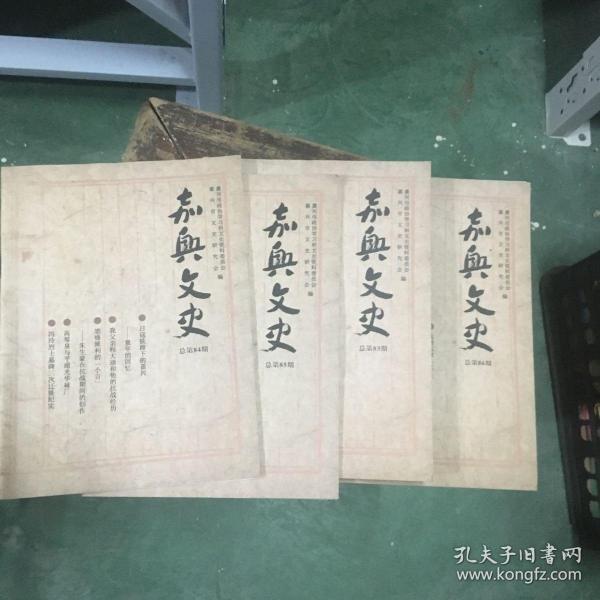 嘉兴市政协学习和文史资料委员会
嘉兴市文史研究会 编
嘉興文史
总第84期
日寇铁蹄下的嘉兴
——童年的回忆
我父亲程天雄和他的抗战经历
迎接胜利的《小言》
——朱生豪在抗战期间的创作
高琴泉与平湖光华袜厂
冯玲烈士墓碑二次迁徙纪实
嘉兴市政协学习和文史资料委员会
嘉兴市文史研究会 编
嘉興文史
总第85期
嘉兴市政协学习和文史资料委员会
嘉兴市文史研究会 编
嘉興文史
总第83期
嘉兴市政协学习和文史资料委员会
嘉兴市文史研究会 编
嘉興文史
总第86期
孔夫子旧书网
www.kongfz.com